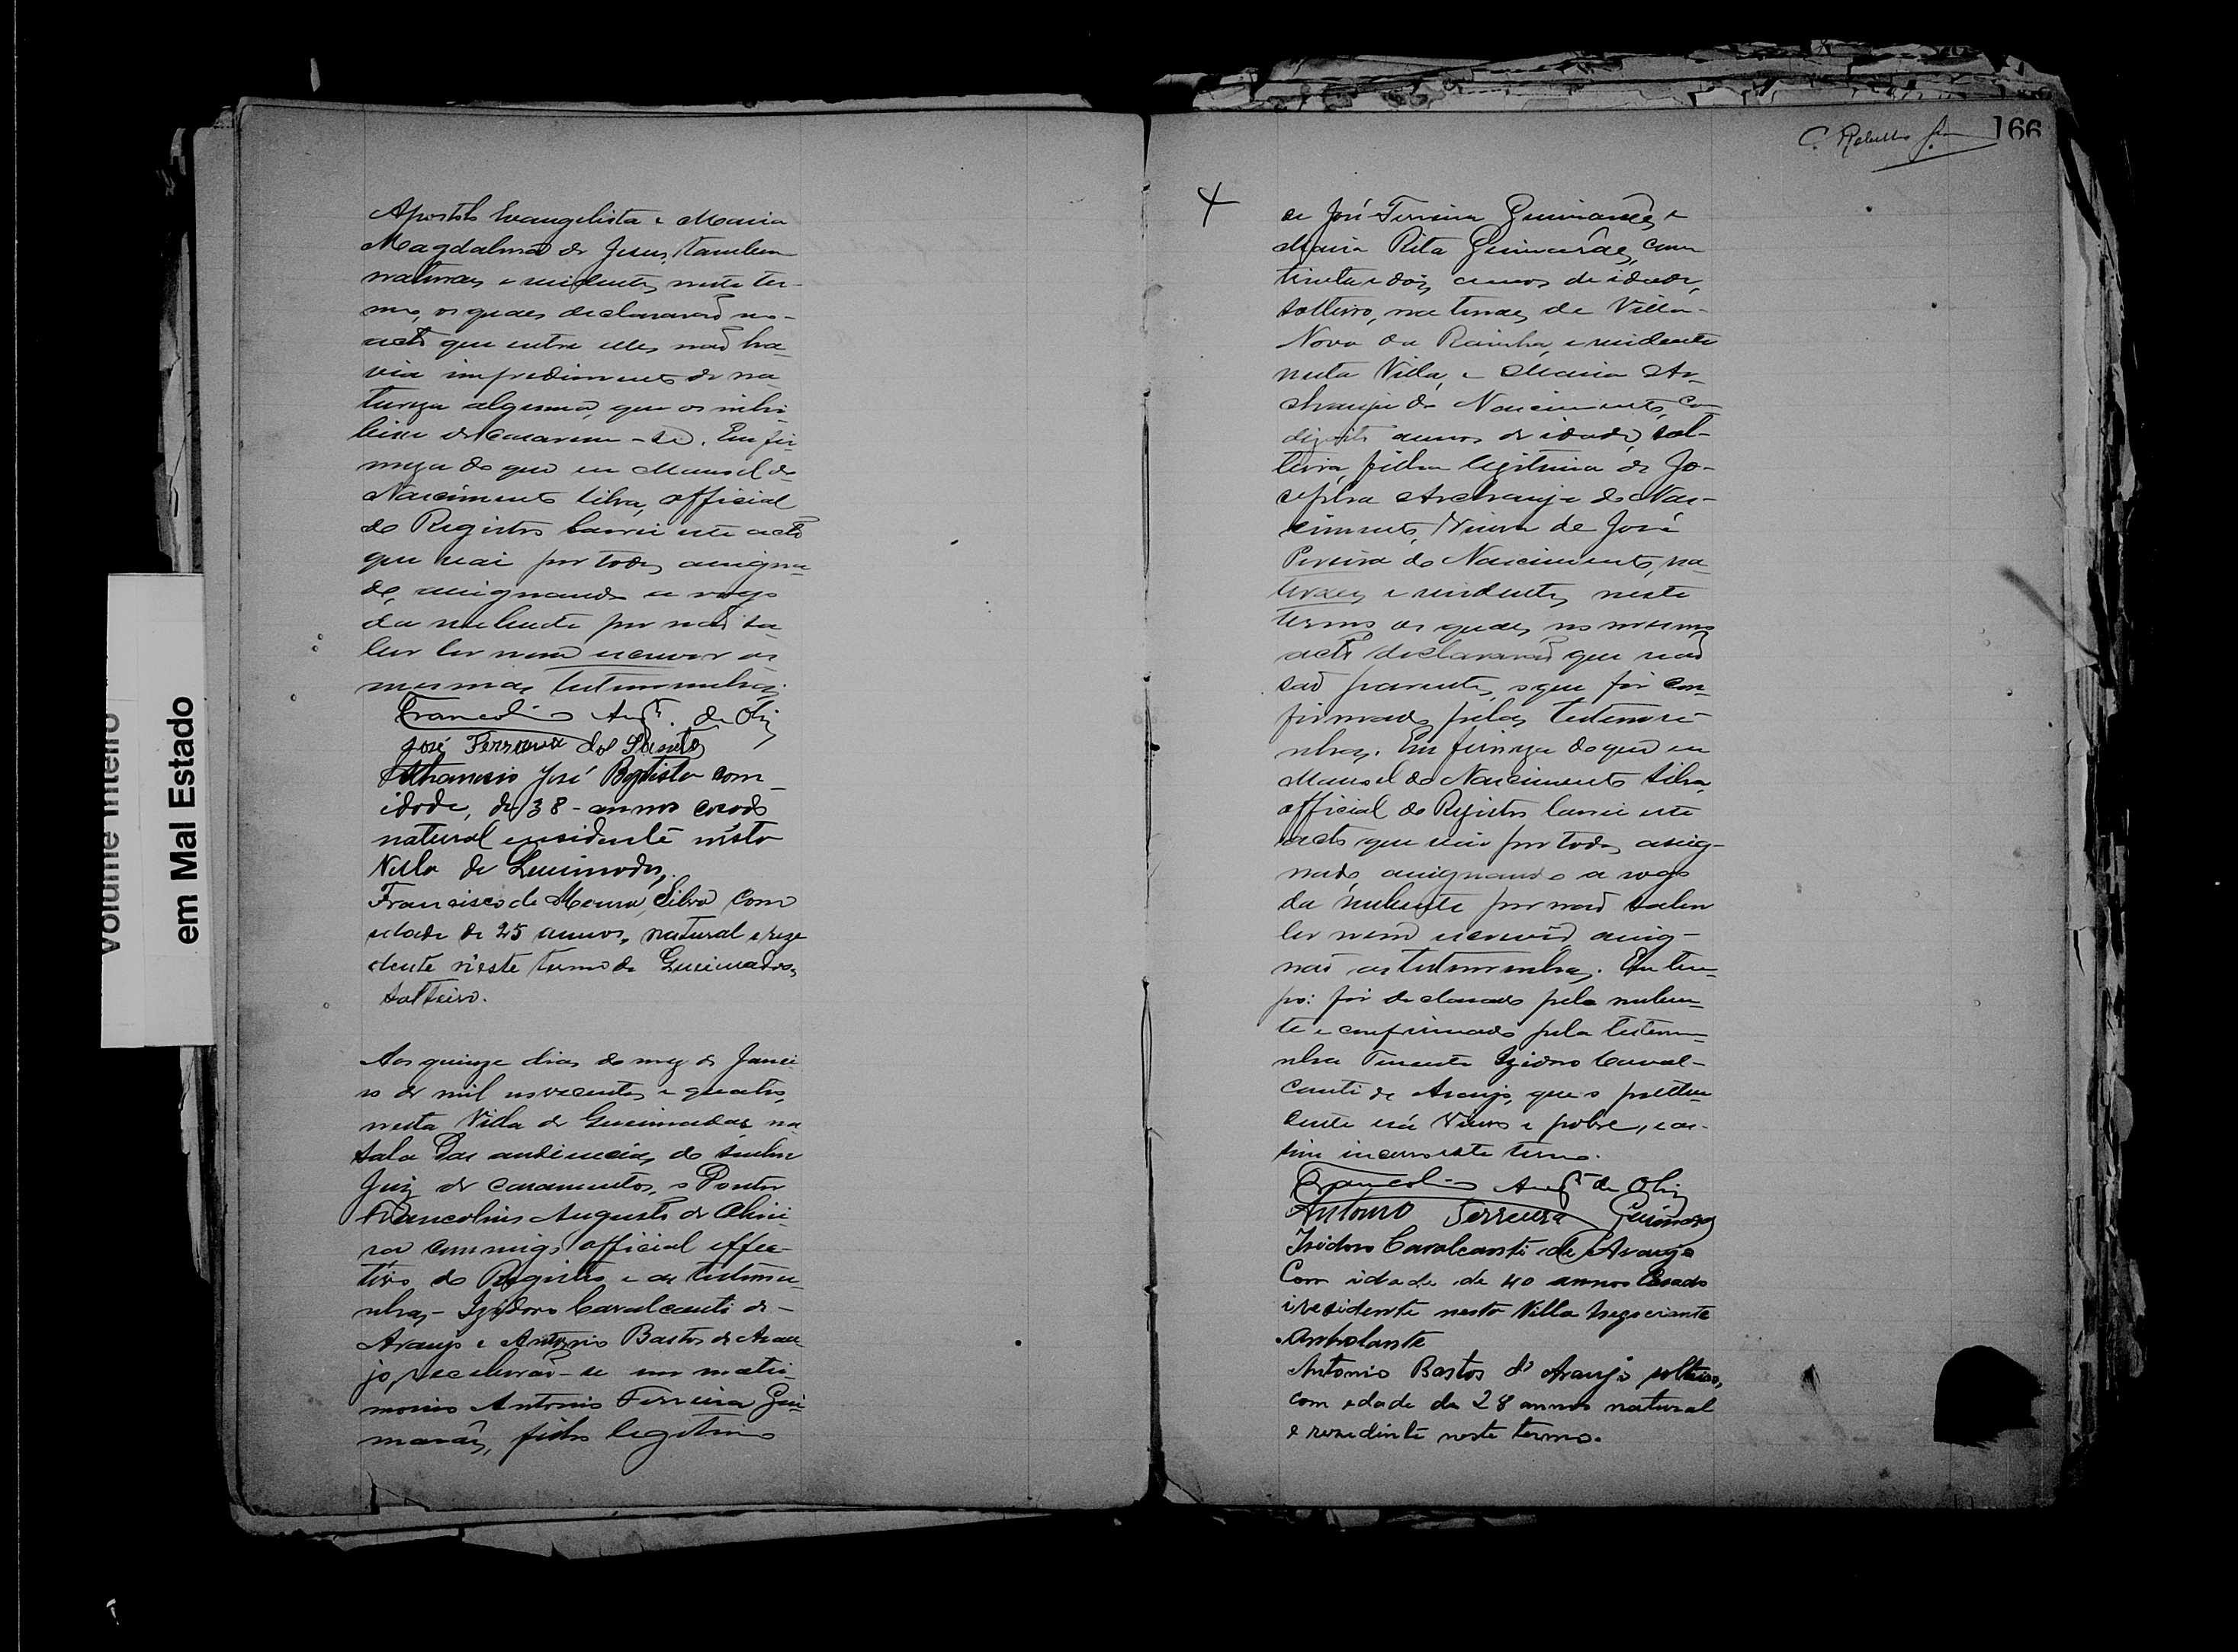 Volume Inteiro
em Mal Estado
Apostolo Evangelista e Maria
Magdalena de Jesus, tambem
naturaes e residentes neste ter-
mo, os quaes declararaõ no
acto que entre elles naõ ha-
via impedimento de na-
tureza alguma, que os inhi-
bisse de casarem-se. Em fir-
meza do que eu Manoel do
Nascimento Silva, official
do Registro lavrei este acto
que vai por todos assigna-
do, assignando a rogo
da nubente por naõ sa-
ber ler nem escrever as
mesmas testemunhas.
Francolino Augto. de Olivª
José Ferreira dos Santos
Athanasio José Baptista com
idade, de 38 - annos casado
natural e residente nesta
Villa de Queimadas,
Francisco de Moura Silva com
edade de 25 annos, natural e reze
dente n'este termo de Queimadas,
solteiro.
Aos quinze dias do mez de Janei
ro de mil novecentos e quatro,
nesta Villa de Queimadas na
sala das audiencias do senhor
Juiz de casamentos, o Doutor
Francolino Augusto de Olivei-
ra commigo official effec-
tivo do Registro e as testemu-
nhas - Izidoro Cavalcanti de -
Araujo e Antonio Bastos de Arau
jo, receberaõ-se em matri-
monio Antonio Ferreira Gui
marães, filho legitimo
166
C. Rebello Jor
de José Ferreira Guimarães e
Maria Rita Guimarães, com
trinta e dois annos de idade,
solteiro, natural de Villa-
Nova da Rainha, e residente
nesta Villa, e Maria Ar-
chanja do Nascimento, com
dizoito annos de idade, sol-
teira, filha legitima de Jo-
sepha Archanja do Nas-
cimento, Viuva de José
Pereira do Nascimento, na-
turaes e residentes neste
termo os quaes no mesmo
acto declararaõ que naõ
saõ parentes, o que foi con-
firmado pelas testemu-
nhas. Em firmeza do que eu
Manoel do Nascimento Silva,
official do Registro lavrei este
acto que vai por todos assig-
nado, assignando a rogo
da nubente por naõ saber
ler nem escrever, assig-
naõ as testemunhas. Em tem-
po: foi declarado pela nuben-
te e confirmado pela testemu-
nha Tenente Izidoro Caval-
canti de Araujo, que o preten-
dente era Viuvo e pobre, e as-
sim incerro este termo.
Francolino Augto de Olivª
Antonio Ferreira Guimarães
Izidoro Cavalcanti de Araujo
Com idade de 40 annos Casado
i residente nesta Villa Negociante
Ambolante
Antonio Bastos d'Araujo solteiro,
com edade de 28 annos natural
e rezedinte neste termo.